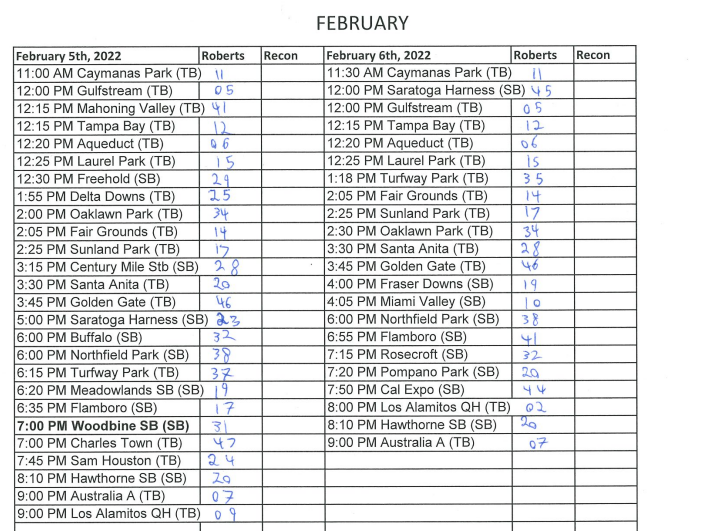 FEBRUARY
February 5th, 2022 Roberts Recon February 6th, 2022 Roberts Recon
11:00 AM Caymanas Park (TB) 11 11:30 AM Caymanas Park (TB) 11
12:00 PM Gulfstream (TB) 05 12:00 PM Saratoga Harness (SB) 45
12:15 PM Mahoning Valley (TB) 41 12:00 PM Gulfstream (TB) 05
12:15 PM Tampa Bay (TB) 12 12:15 PM Tampa Bay (TB) 12
12:20 PM Aqueduct (TB) 06 12:20 PM Aqueduct (TB) 06
12:25 PM Laurel Park (TB) 15 12:25 PM Laurel Park (TB) 15
12:30 PM Freehold (SB) 29 1:18 PM Turfway Park (TB) 35
1:55 PM Delta Downs (TB) 25 2:05 PM Fair Grounds (TB) 14
2:00 PM Oaklawn Park (TB) 34 2:25 PM Sunland Park (TB) 17
2:05 PM Fair Grounds (TB) 14 2:30 PM Oaklawn Park (TB) 34
2:25 PM Sunland Park (TB) 17 3:30 PM Santa Anita (TB) 28
3:15 PM Century Mile Stb (SB) 28 3:45 PM Golden Gate (TB) 46
3:30 PM Santa Anita (TB) 20 4:00 PM Fraser Downs (SB) 19
3:45 PM Golden Gate (TB) 46 4:05 PM Miami Valley (SB) 10
5:00 PM Saratoga Harness (SB) 23 6:00 PM Northfield Park (SB) 38
6:00 PM Buffalo (SB) 32 6:55 PM Flamboro (SB) 41
6:00 PM Northfield Park (SB) 38 7:15 PM Rosecroft (SB) 32
6:15 PM Turfway Park (TB) 37 7:20 PM Pompano Park (SB) 20
6:20 PM Meadowlands SB (SB) 19 7:50 PM Cal Expo (SB) 44
6:35 PM Flamboro (SB) 17 8:00 PM Los Alamitos QH (TB) 02
7:00 PM Woodbine SB (SB) 31 8:10 PM Hawthorne SB (SB) 20
7:00 PM Charles Town (TB) 47 9:00 PM Australia A (TB) 07
7:45 PM Sam Houston (TB) 24
8:10 PM Hawthorne SB (SB) 20
9:00 PM Australia A (TB) 07
9:00 PM Los Alamitos QH (TB) 09